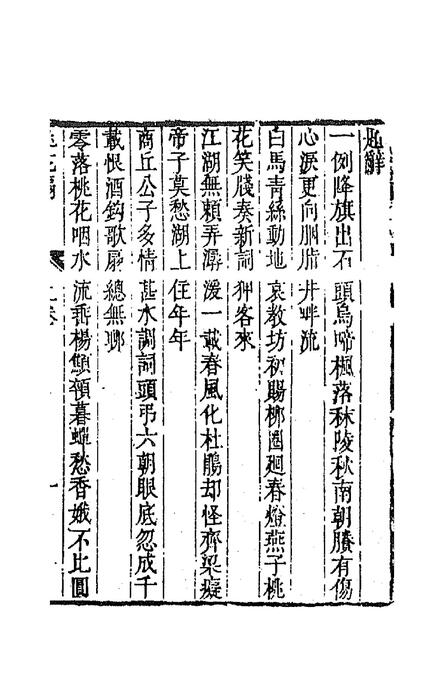 題辭
一例降旗出石頭烏啼楓落秣陵秋南朝賸有傷
心淚更向胭脂井畔流
白馬青絲動地哀教坊初賜柳圈廻春燈燕子桃
花笑牋奏新詞狎客來
江湖無賴弄潺湲一載春風化杜鵑却怪齊梁癡
帝子莫愁湖上住年年
商丘公子多情甚水調詞頭弔六朝眼底忽成千
載恨酒鈎歌扇總無聊
零落桃花咽水流垂楊顦顇暮蟬愁香娥不比圓